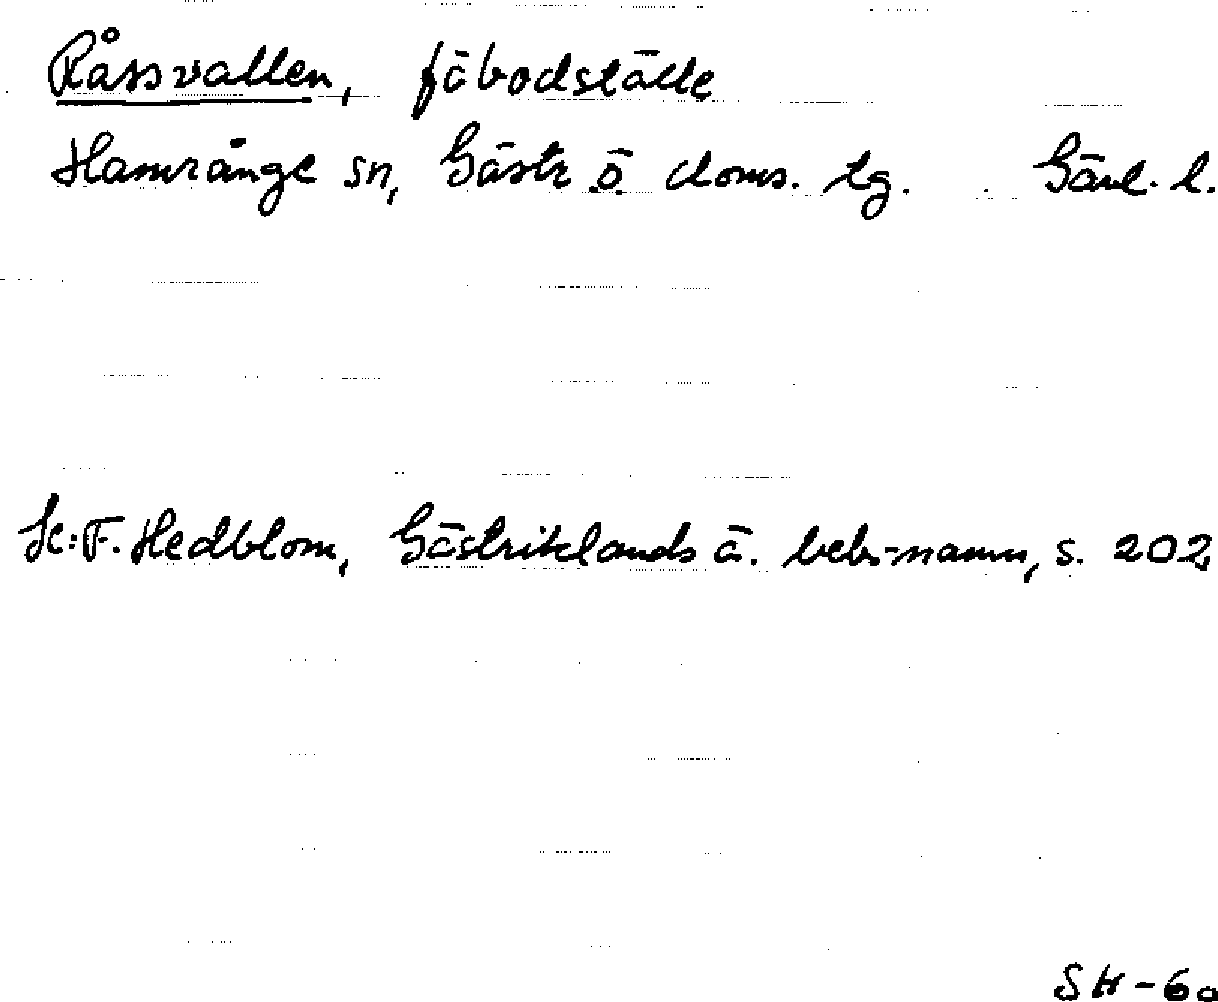 Råssvallen, fäbodställe
Hamrånge sn, Gästr ö. doms. tg. Gävl. l.
Se: F. Hedblom, Gästriklands ä. bebr-namn, s. 202
SH-60